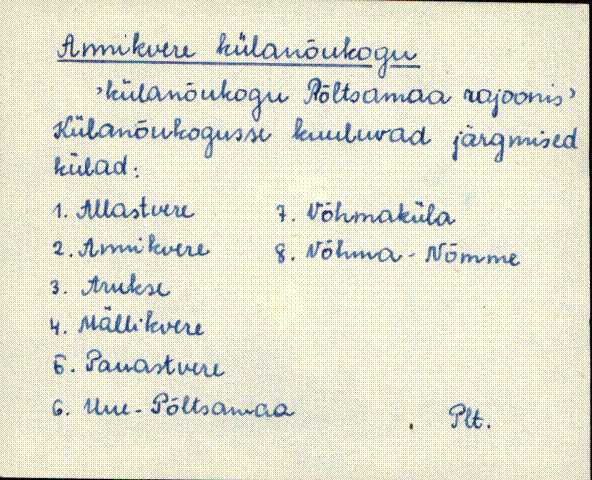 Annikvere külanõukogu
›külanõukogu Põltsamaa rajoonis›
Külanõukogusse kuuluvad järgmised
külad:
1. Allastvere
2. Annikvere
3. Arukse
4. Mällikvere
5. Pauastvere
6. Uue-Põltsamaa
7. Võhmaküla
8. Võhma-Nõmme
Plt.